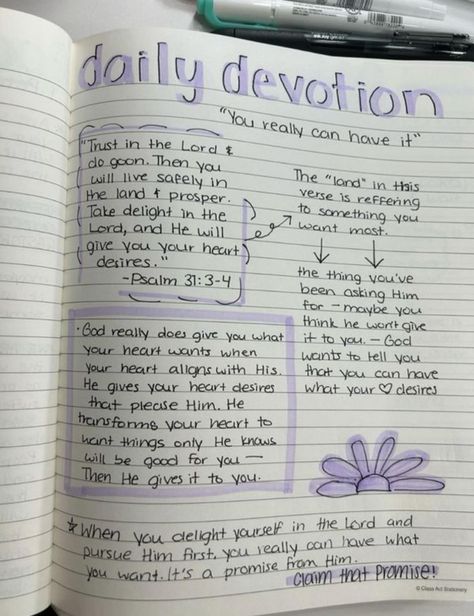 daily devotion
"You really can have it"
"Trust in the Lord &
do goon. Then you
will live safely in
the land & prosper.
Take delight in the
Lord, and He will
give you your heart
desires."
-Psalm 31:3-4
The "land" in this
verse is reffering
to something you
want most.
the thing you've
been asking Him
for - maybe you
think he won't give
it to you. - God
wants to tell you
that you can have
what your ♡ desires
· God really does give you what
your heart wants when
your heart aligns with His.
He gives your heart desires
that please Him. He
transforms your heart to
want things only He knows
will be good for you —
Then He gives it to you.
☆ When you delight yourself in the Lord and
pursue Him first, you really can have what
you want. It's a promise from Him.
Claim that Promise!
© Class Act Stationery